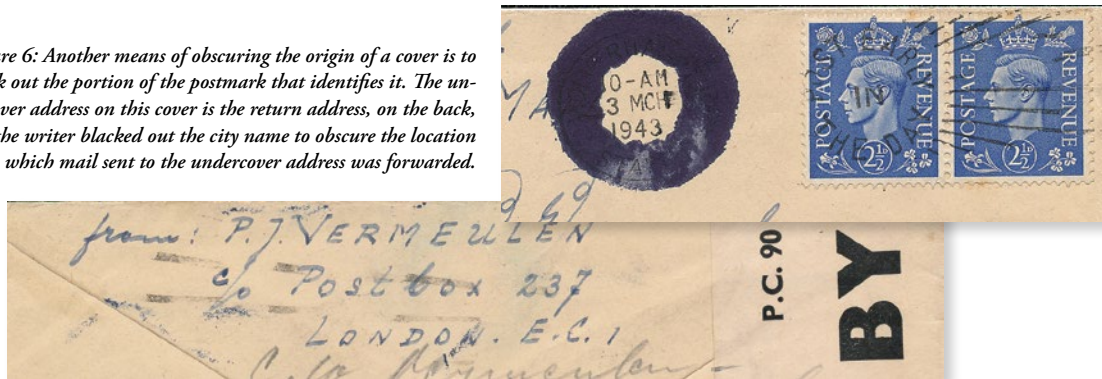 re 6: Another means of obscuring the origin of a cover is to
k out the portion of the postmark that identifies it. The un-
ver address on this cover is the return address, on the back,
the writer blacked out the city name to obscure the location
which mail sent to the undercover address was forwarded.
0-AM
3 MCH
1943
POSTAGE REVENUE
2½D
POSTAGE REVENUE
2½D
EARLY
IN
THE DAY
from: P.J. VERMEULEN
c/o Postbox 237
LONDON. E.C.1
P.C. 90
BY